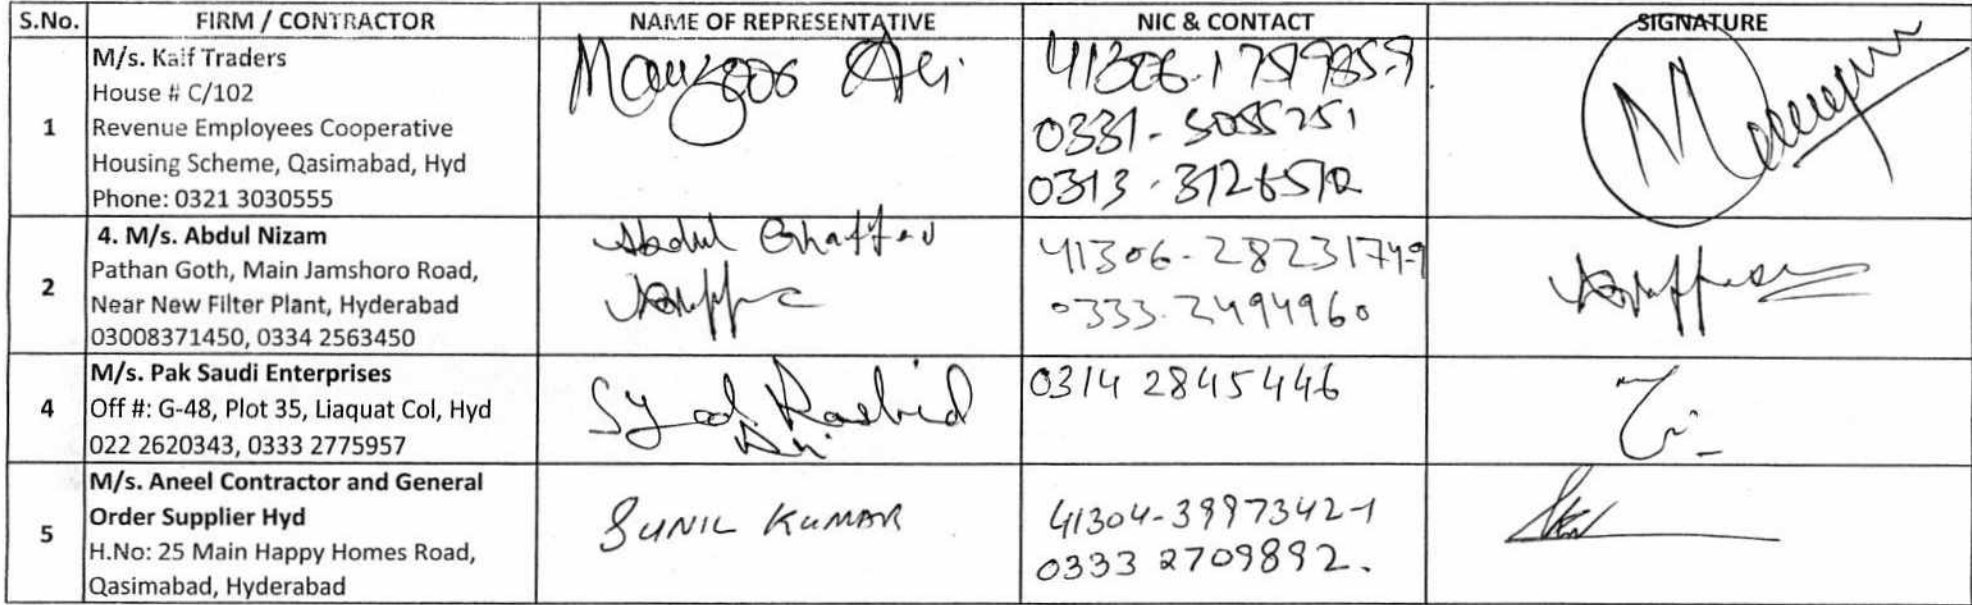 S.No. FIRM / CONTRACTOR NAME OF REPRESENTATIVE NIC & CONTACT SIGNATURE
1
M/s. Kaif Traders
House # C/102
Revenue Employees Cooperative
Housing Scheme, Qasimabad, Hyd
Phone: 0321 3030555
Manzoor Ali
0331-5055251
2
4. M/s. Abdul Nizam
Pathan Goth, Main Jamshoro Road,
Near New Filter Plant, Hyderabad
03008371450, 0334 2563450
Abdul Ghaffar
41306-2823174-9
0333-2494960
4
M/s. Pak Saudi Enterprises
Off #: G-48, Plot 35, Liaquat Col, Hyd
022 2620343, 0333 2775957
Syed Rashid
Ali
0314 2845446
5
M/s. Aneel Contractor and General
Order Supplier Hyd
H.No: 25 Main Happy Homes Road,
Qasimabad, Hyderabad
SUNIL KUMAR
41304-3997342-1
0333 2709892.